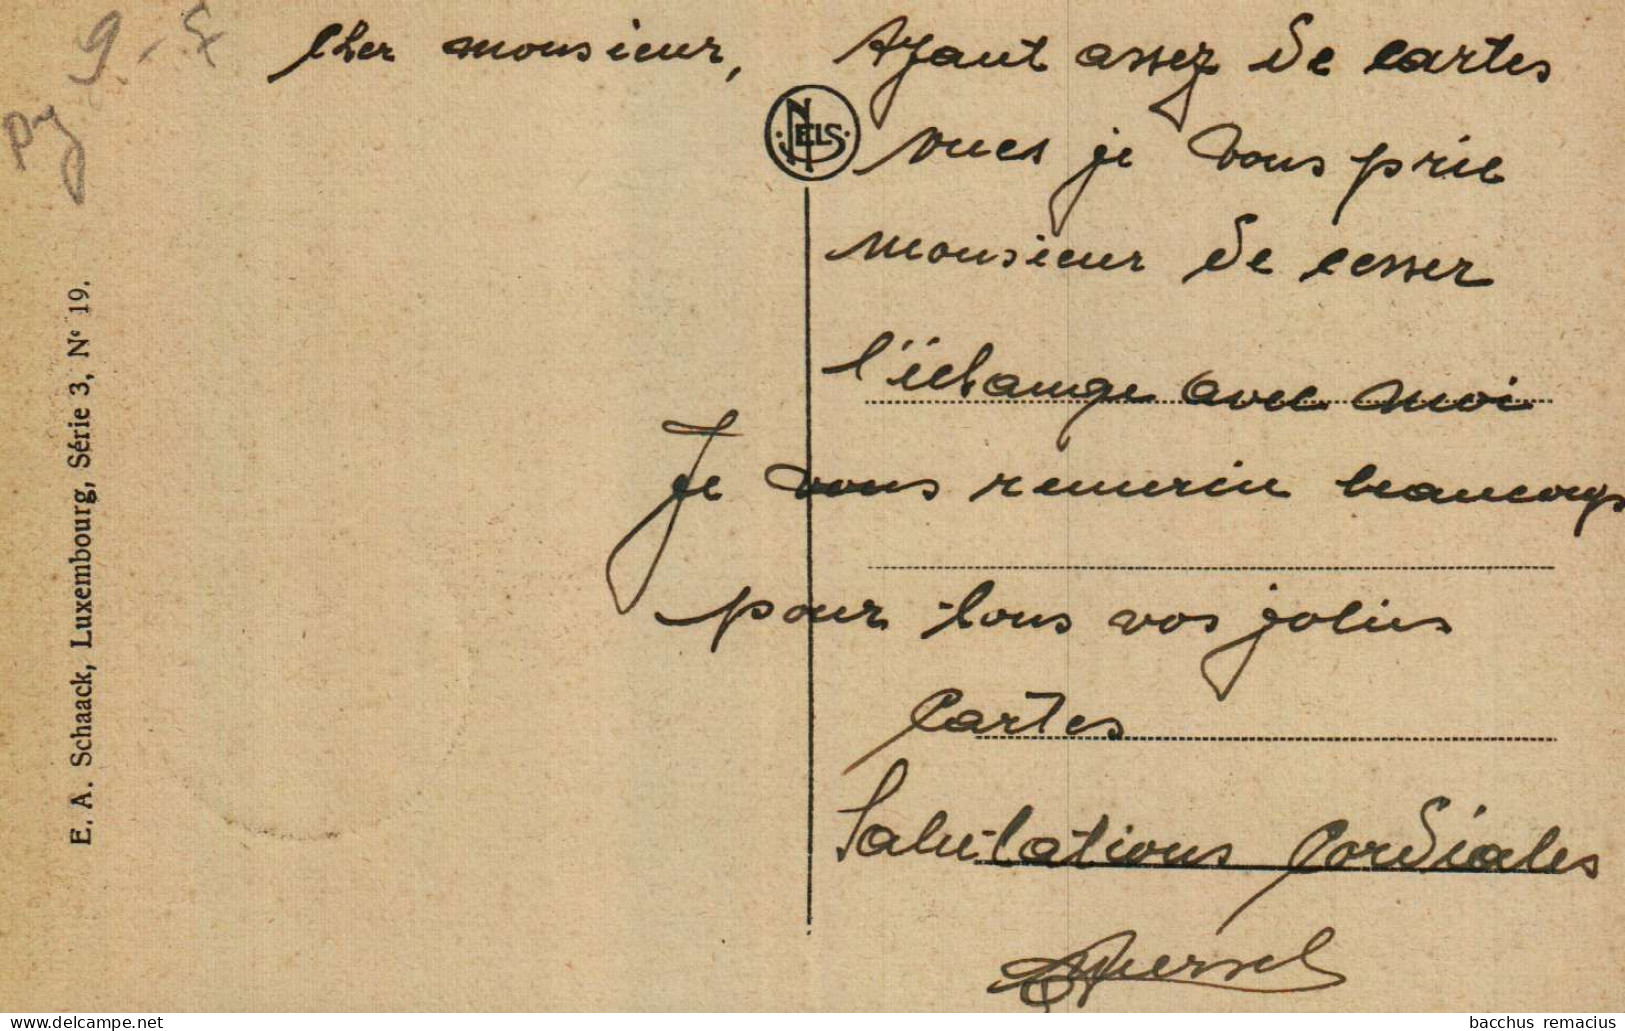 9.-
Cher monsieur,
Ayant assez de cartes
NELS
vues je vous prie
monsieur de cesser
l'échange avec moi
Je vous remercie beaucoup
pour tous vos jolies
Cartes
Salutations Cordiales
E. A. Schaack, Luxembourg, Série 3, Nº 19.
bacchus remacius